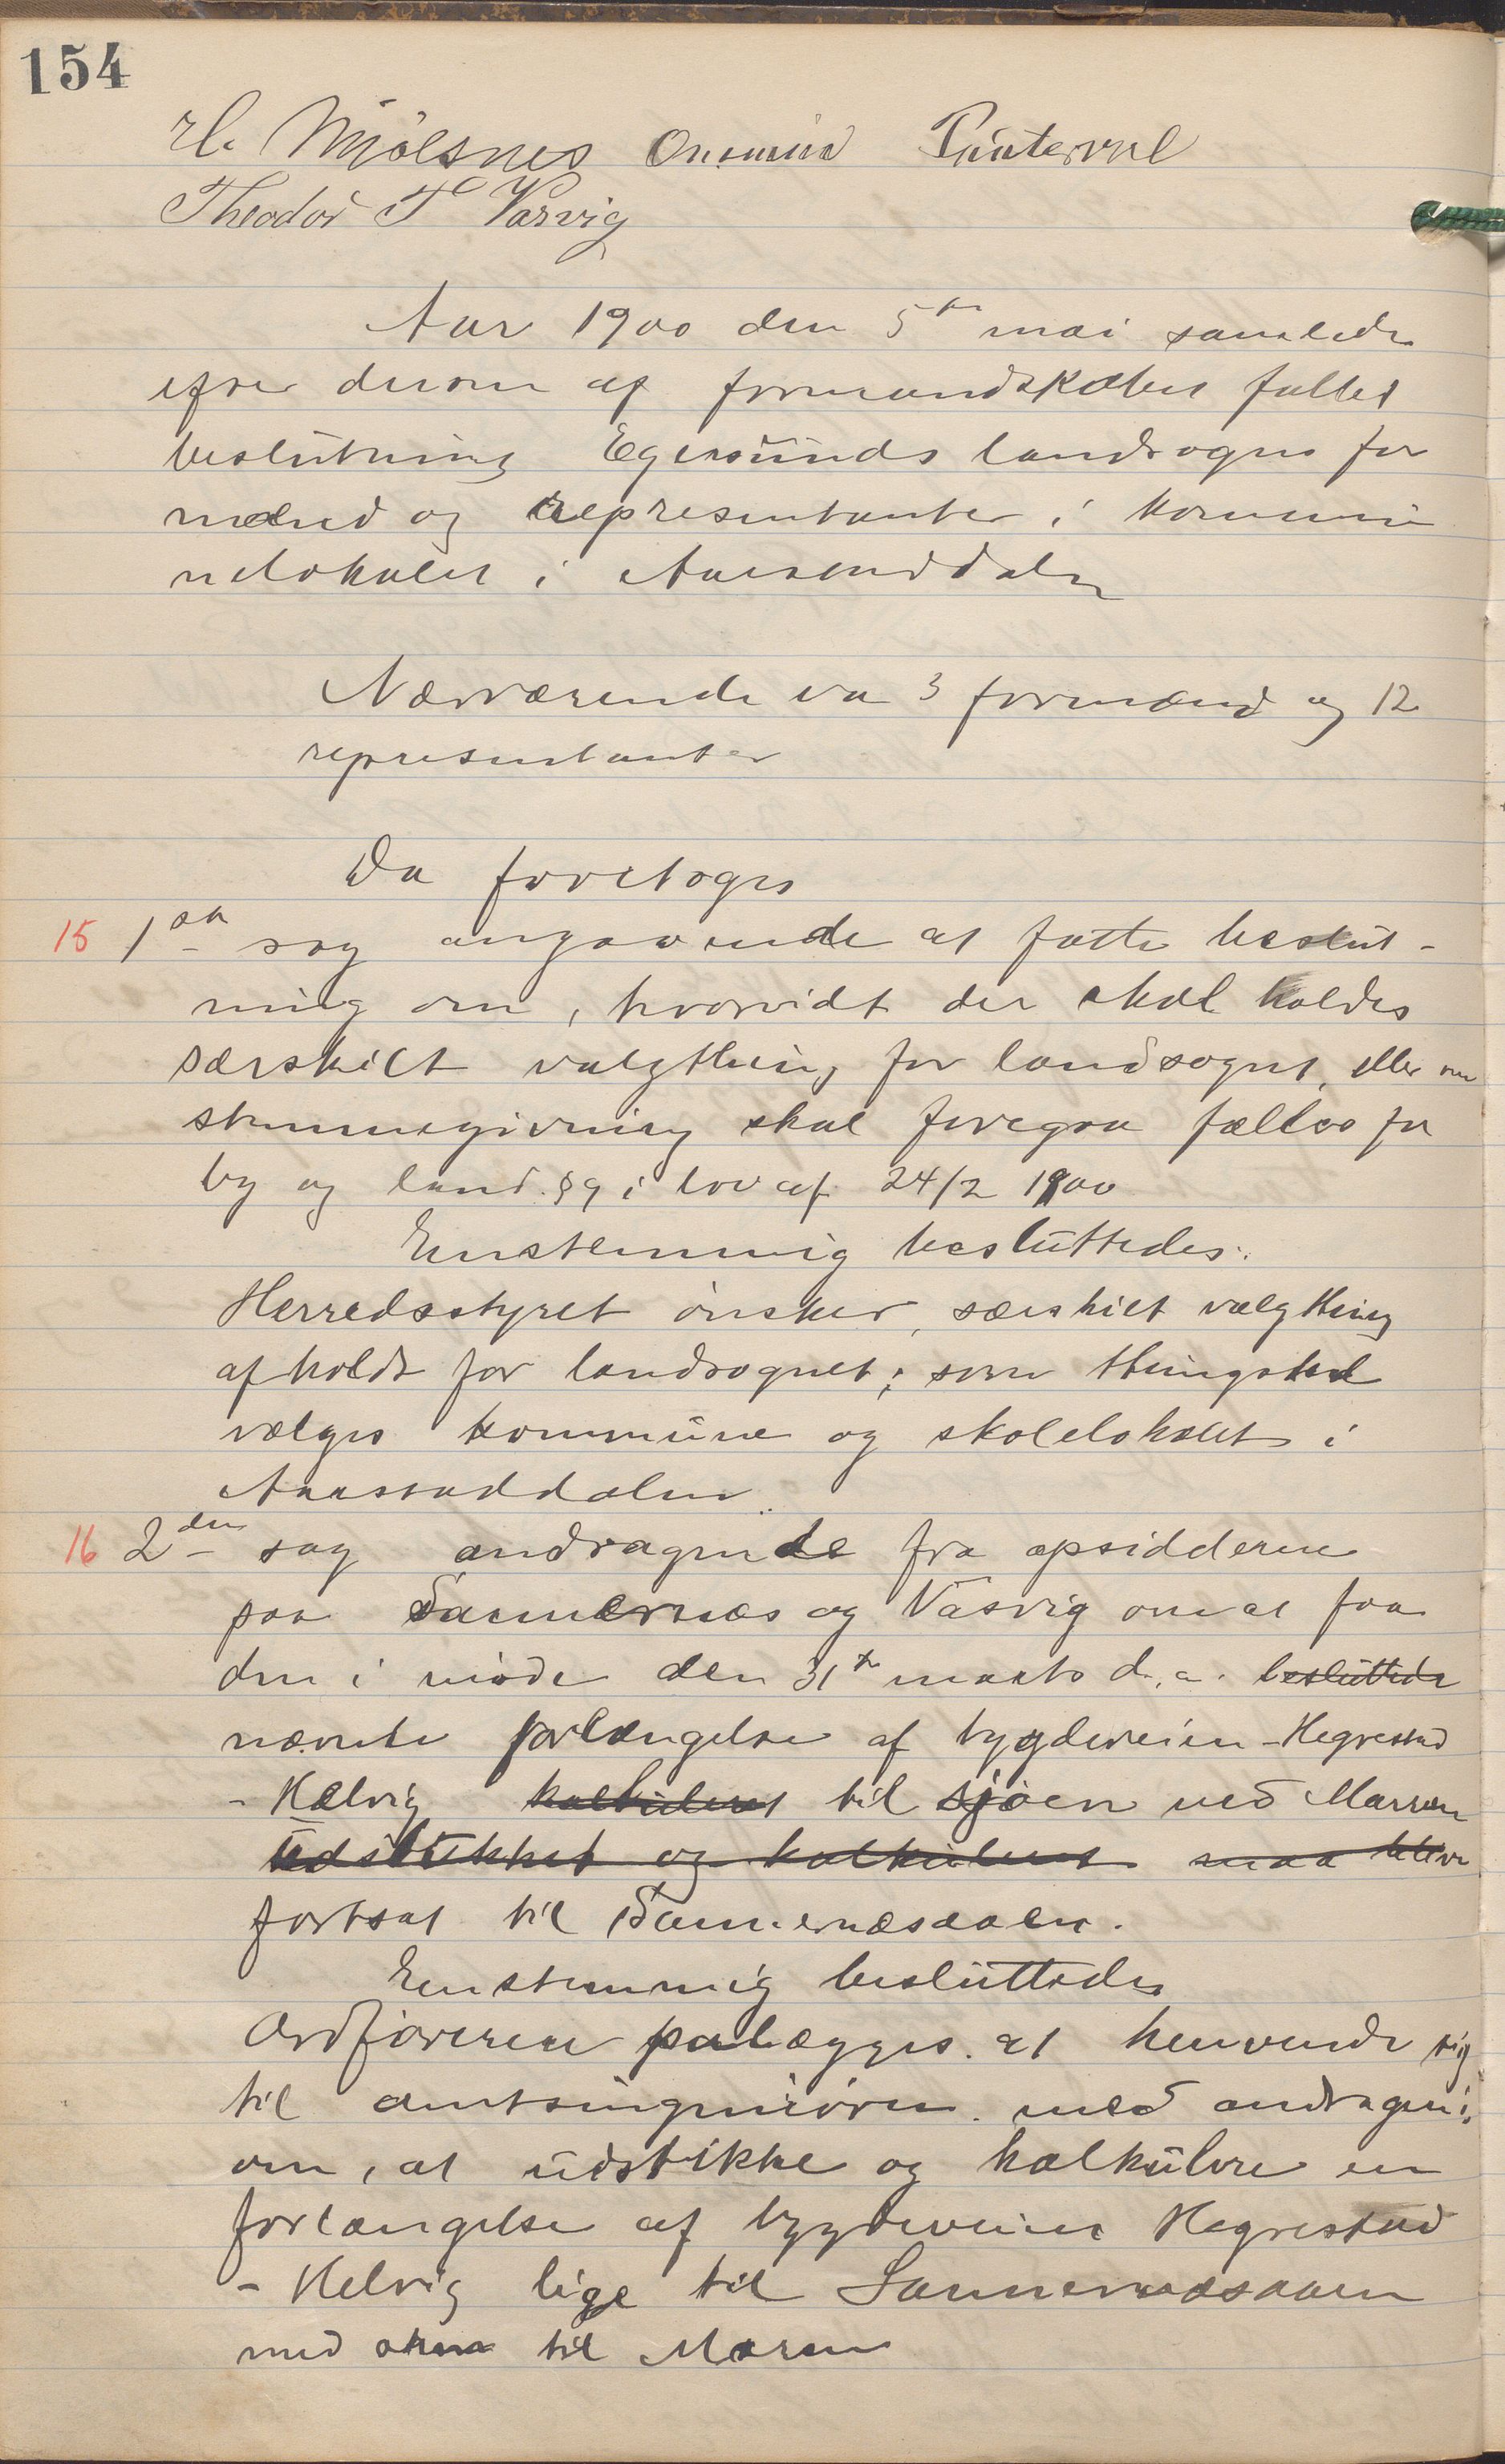 154
Mjølsnes
Theodor T Varvig
Aar 1900 den 5te mai samlede
efter derom af formandskabet fattet
beslutning Egersunds landsogns for
mænd og representanter i kommu
nelokalet i Aarstaddalen
Nærværende var 3 formænd og 12
representanter
Da foretoges
15 1ste sag angaaende at fatte beslut-
ning om, hvorvidt der skal holdes
særskilt valgthing for landsognet, eller om
stemmegivning skal foregaa fælles for
by og land. § 9 i lov af 24/2 1900
Enstemmig besluttedes:
Herredsstyret ønsker, særskilt valgthing
afholdt for landsognet; som thingsted
vælges kommune og skolelokalet i
Aarstaddalen
16 2den sag andragende fra opsidderne
paa Sannernæs og Vasvig om at faa
den i møde den 31te marts d.a. besluttede
nævnte forlængelse af bygdeveien - Hegrestad
- Hælvig kalkuleret til sjøen ved Marren
udstukket og kalkuleret maa blive
fortsat til Sannernæsaaen.
Enstemmig besluttedes
Ordføreren paalægges at henvende sig
til amtsingeniøren med andragende
om, at udstikke og kalkulere en
forlængelse af bygdeveien Hegrestad
- Helvig lige til Sannernæsaaen
med til Maren